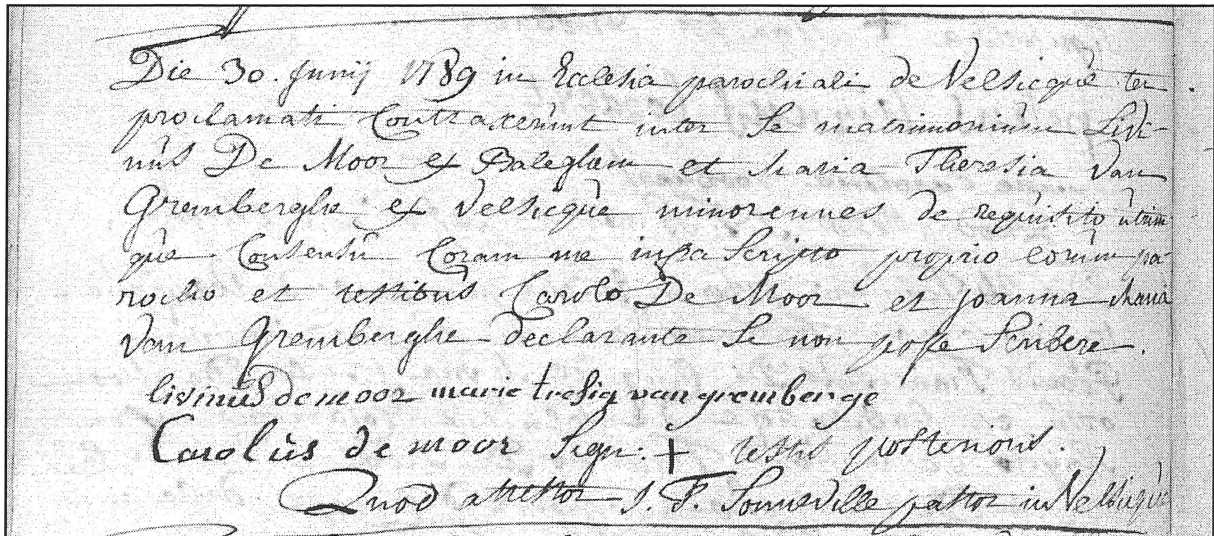 Die 30. Junij 1789 in Ecclesia parochiali de Velsicquè ter
proclamati Contraxerùnt inter se matrimoniùm Livi-
nùs De Moor ex Baleghem et Maria Theresia Van
Gremberghe ex Velsicquè minorennes de reqùisito ùtriùs
qùe Consensù Coram me infra Scripto proprio eorùm pa-
rocho et testibùs Carolo De Moor et joanna Maria
Van Gremberghe declarante se non posse Scribere.
livinùs de moor marie tresig van gremberge
Carolùs de moor Sign. + testis posterioris.
Quod attestor J. F. Sonneville pastor in Velsicqùe